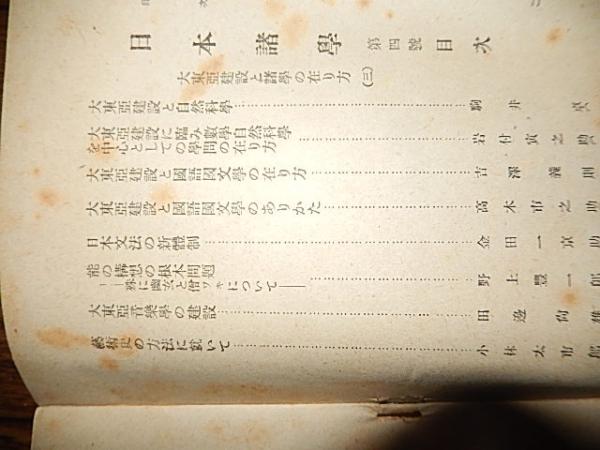 日本諸學 第四號 目次
大東亞建設と諸學の在り方(三)
大東亞建設と自然科學……駒井卓
大東亞建設に臨み數學自然科學
を中心としての學問の在り方……岩付寅之助
大東亞建設と國語國文學の在り方……吉澤義則
大東亞建設と國語國文學のありかた……高木市之助
日本文法の新體制……金田一京助
能の構想の根本問題
——殊に幽玄と僧ワキについて——……野上豐一郎
大東亞音樂學の建設……田邊尚雄
藝術史の方法に就いて……小林太市郎